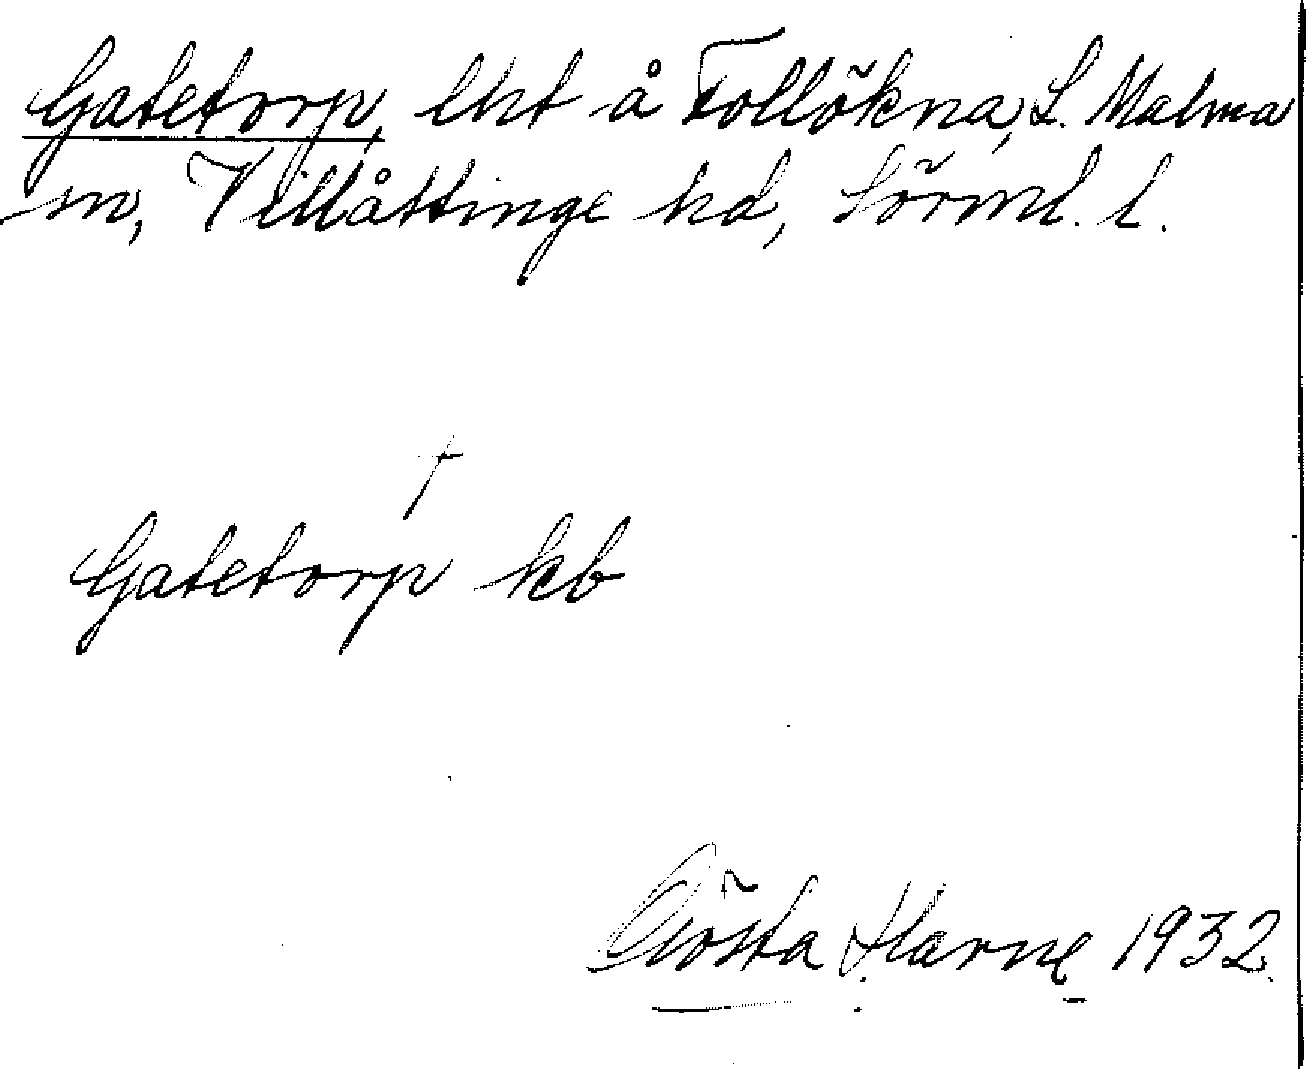 Gatetorp, lht å Tollökna, L. Malma
sn, Villåttinge hd, Sörml. l.
†
Gatetorp kb
Gösta Harne 1932.